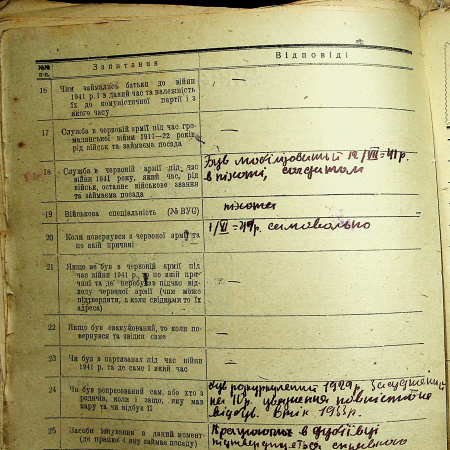 №№ п-п.
Запитання
Відповіді
16 Чим займались батьки до війни
1941 р. і в даний час та належність
їх до комуністичної партії і з
якого часу
—
17 Служба в червоній армії під час гро-
мадянської війни 1917—22 років,
рід військ та займаєма посада
—
18 Служба в червоній армії під час
війни 1941 року, який час, рід
військ, останнє військове звання
та займаєма посада
Був мобілізований 12/VII-41 р.
в піхоті, солдатом
19 Військова спеціальність (№ ВУС)
піхота
20 Коли повернувся з червоної армії та
по якій причині
самовольно
21 Якщо не був в червоній армії під
час війни 1941 р., то по якій при-
чині та де перебував підчас від-
ходу червоної армії (чим може
підтвердити, а коли свідками то їх
адреса)
—
22 Якщо був евакуйований, то коли по-
вернувся та звідки саме
—
23 Чи був в партизанах під час війни
1941 р. та де саме і який час
—
24 Чи був репресований сам, або хто з
родичів, коли і защо, яку мав
кару та чи відбув її
був розкуркулений 1929 р. Засуджений
на 10 р.
1933 р.
25 Засоби існування в даний момент
(де працює і яку займає посаду)